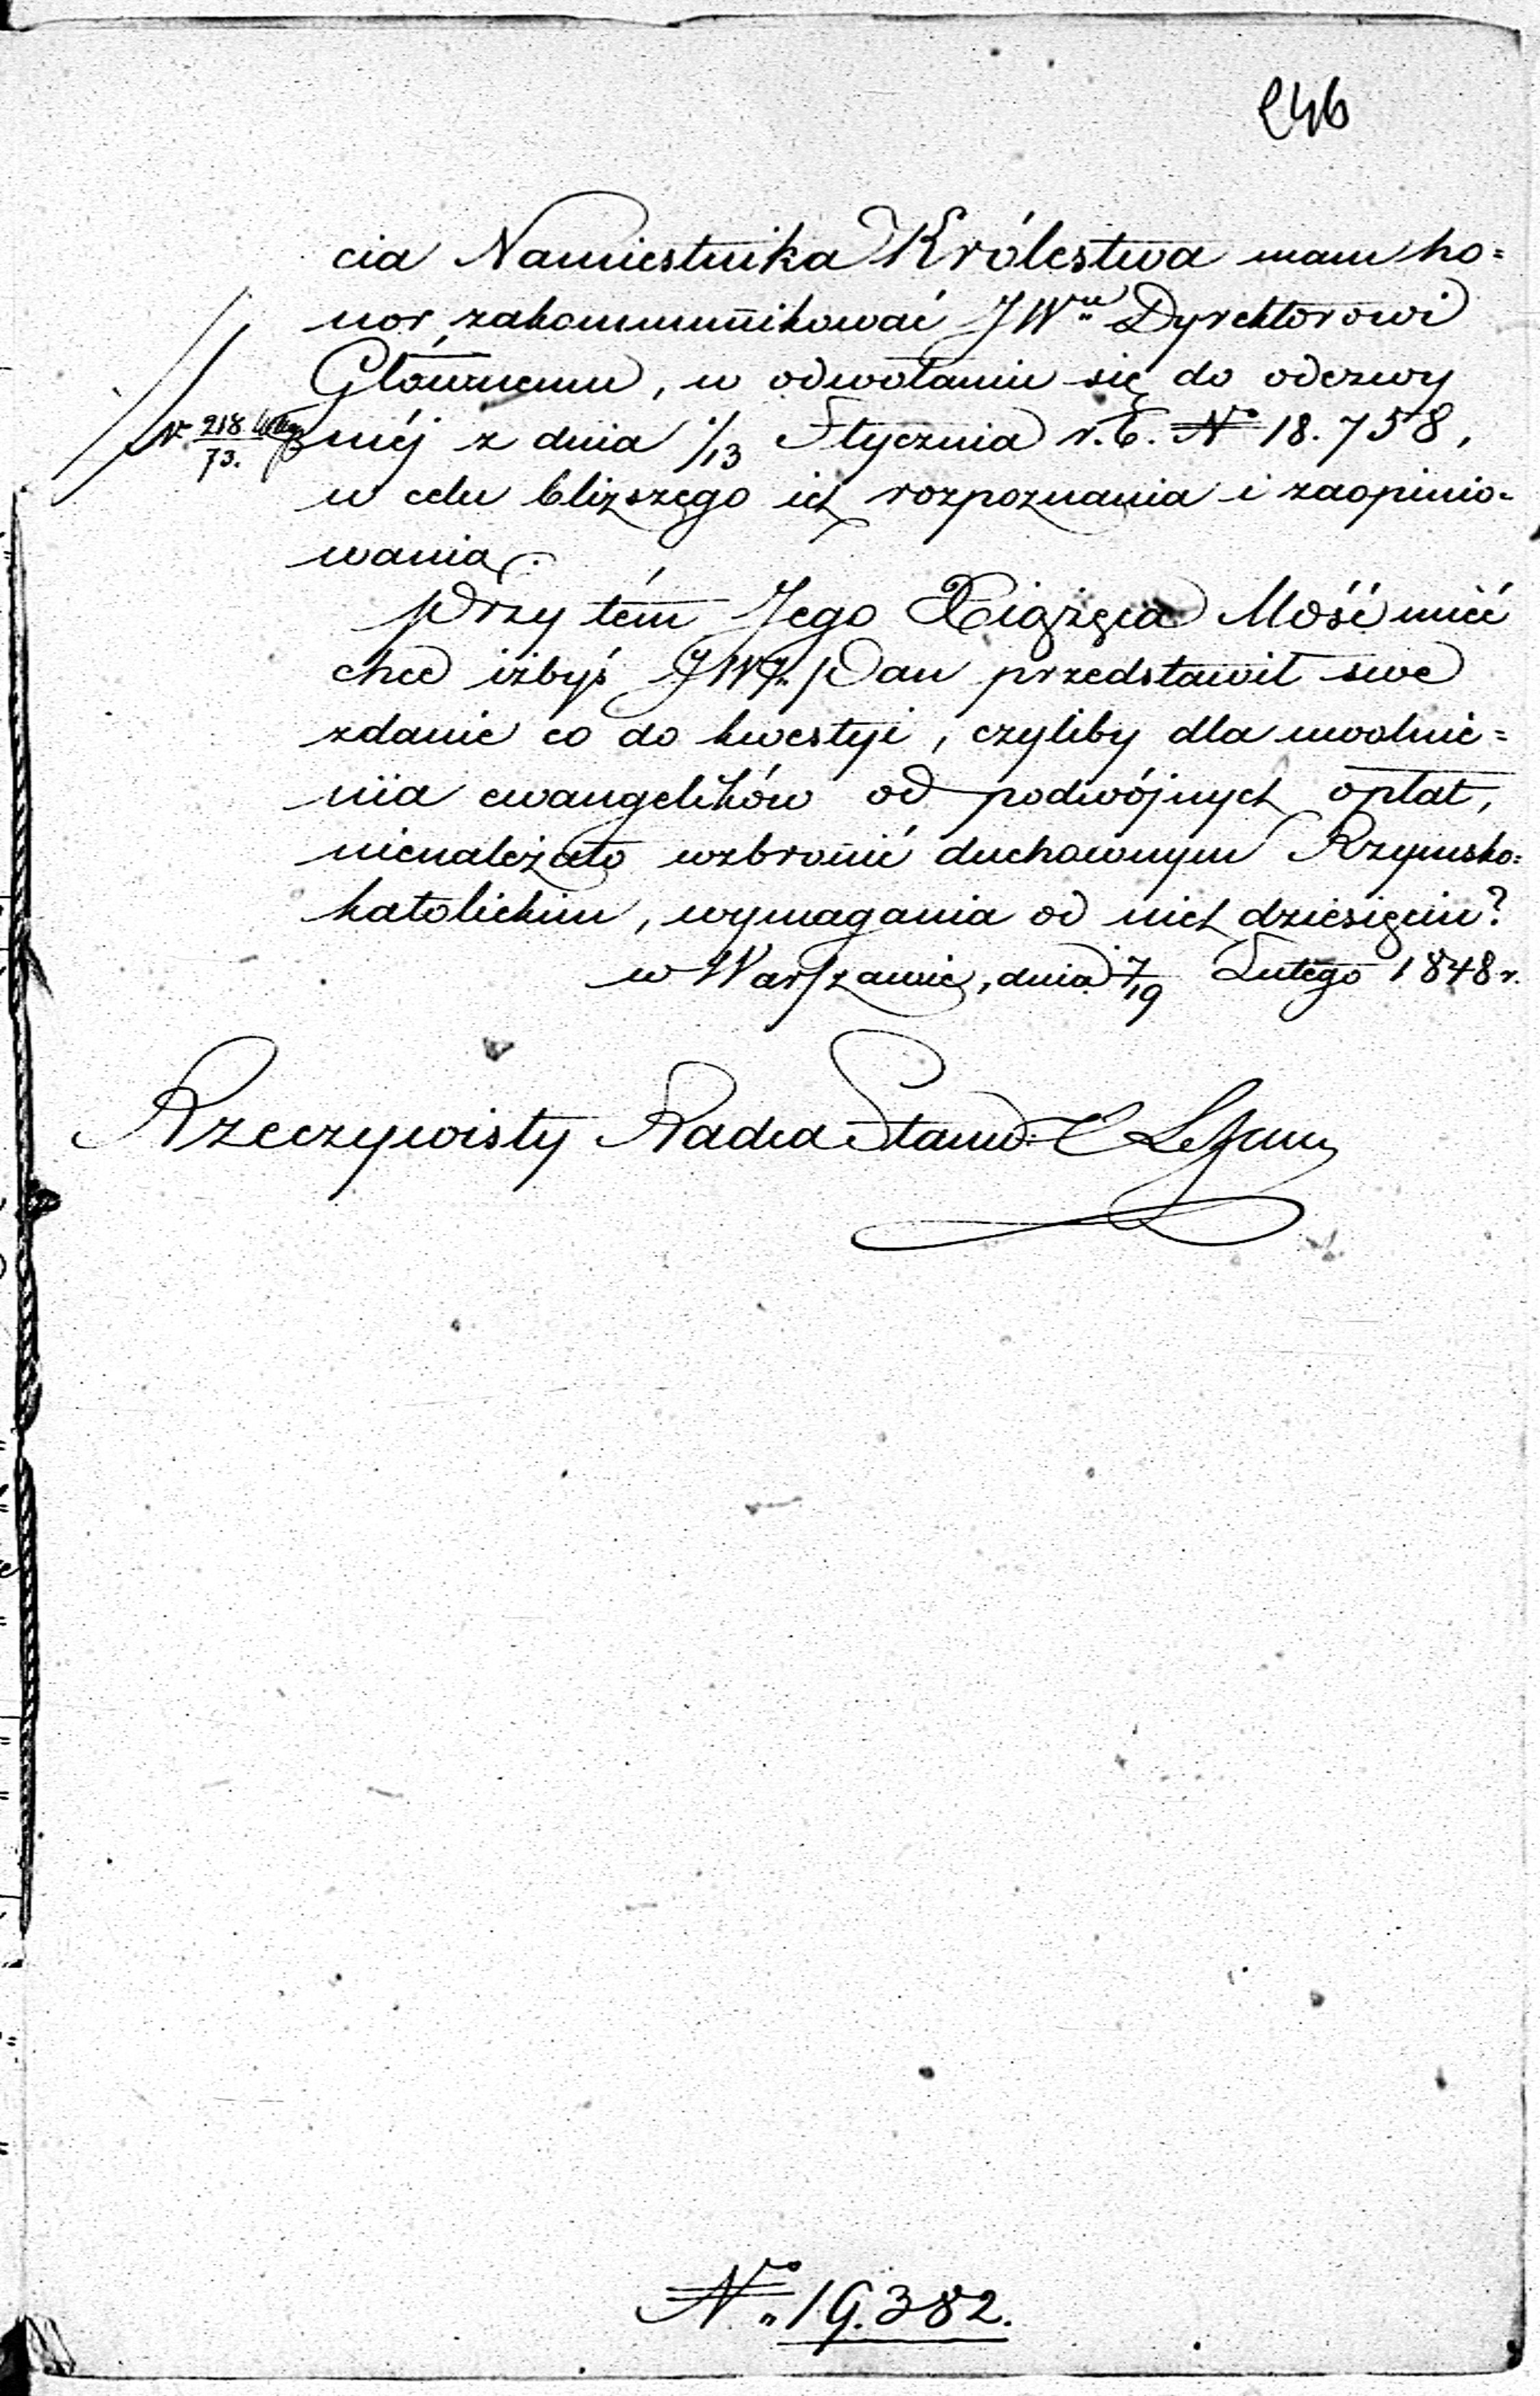 246
cia Namiestnika Królestwa mam ho=
nor zakommunikować JWu Dyrektorowi
Głównemu, w odwołaniu się do odezwy
Nr 218
73.
méj z dnia 1/13 Stycznia r. b. No 18.758,
w celu bliższego ich rozpoznania i zaopinio=
wania.
Przy tém Jego Xiążęca Mość mieć
chce iżbyś JW. Pan przedstawił swe
zdanie co do kwestyi, czyliby dla uwolnie=
nia ewangelików od podwójnych opłat,
nienależało wzbronić duchownym Rzymsko=
katolickim, wymagania od nich dziesięcin?
w Warszawie, dnia 7/19 Lutego 1848 r.
Rzeczywisty Radca Stanu
No 19.382.